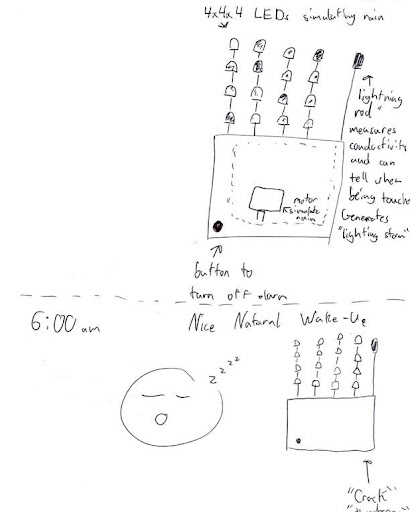 4x4x4 LEDs simulating rain
"lightning
rod"
measures
conductivity
and can
tell when
being touche
Generates
"lighting storm"
motor
simulate
rain
button to
turn off alarm
6:00 am
Nice Natural Wake-Up
zzzz
"Crack"